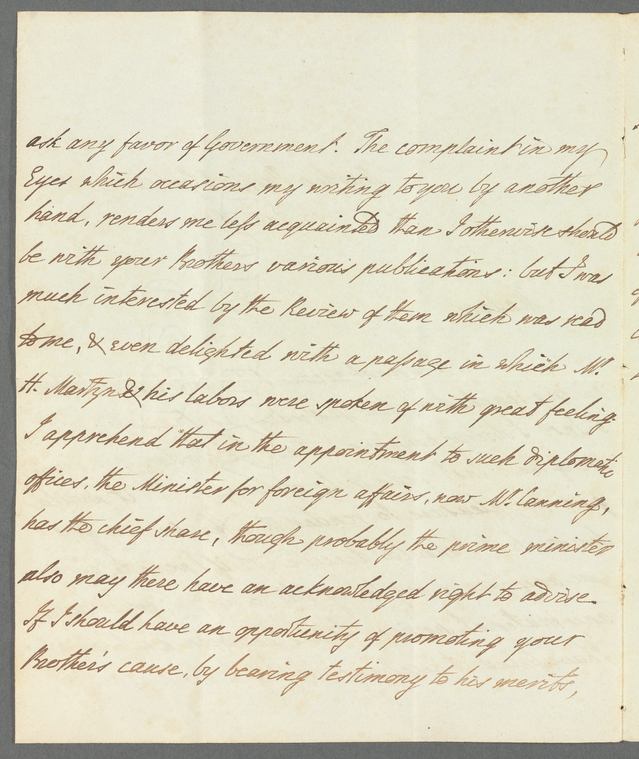 ask any favor of Government. The complaint in my
Eyes which occasions my writing to you by another
hand, renders me less acquainted than I otherwise should
be with your Brothers various publications: but I was
much interested by the Review of them which was read
to me, & even delighted with a passage in which Mr.
H. Martyn & his labors were spoken of with great feeling
I apprehend that in the appointment to such diplomatic
offices, the Minister for foreign affairs, now Mr. Canning,
has the chief share, though probably the prime minister
also may there have an acknowledged right to advise.
If I should have an opportunity of promoting your
Brother's cause, by bearing testimony to his merits,